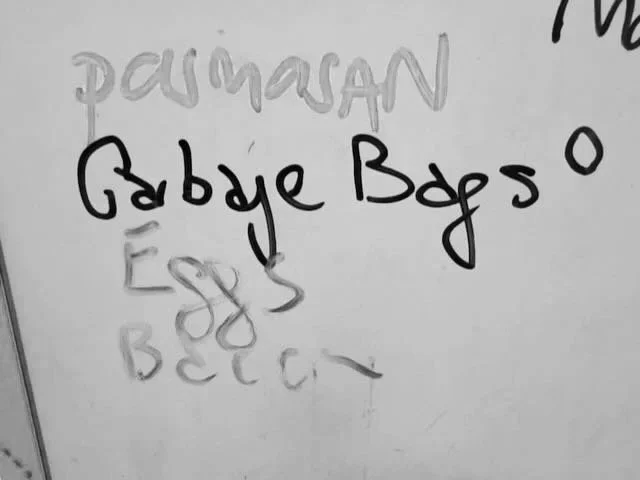 parmarsAN
Garbage Bags
Eggs
Bacon